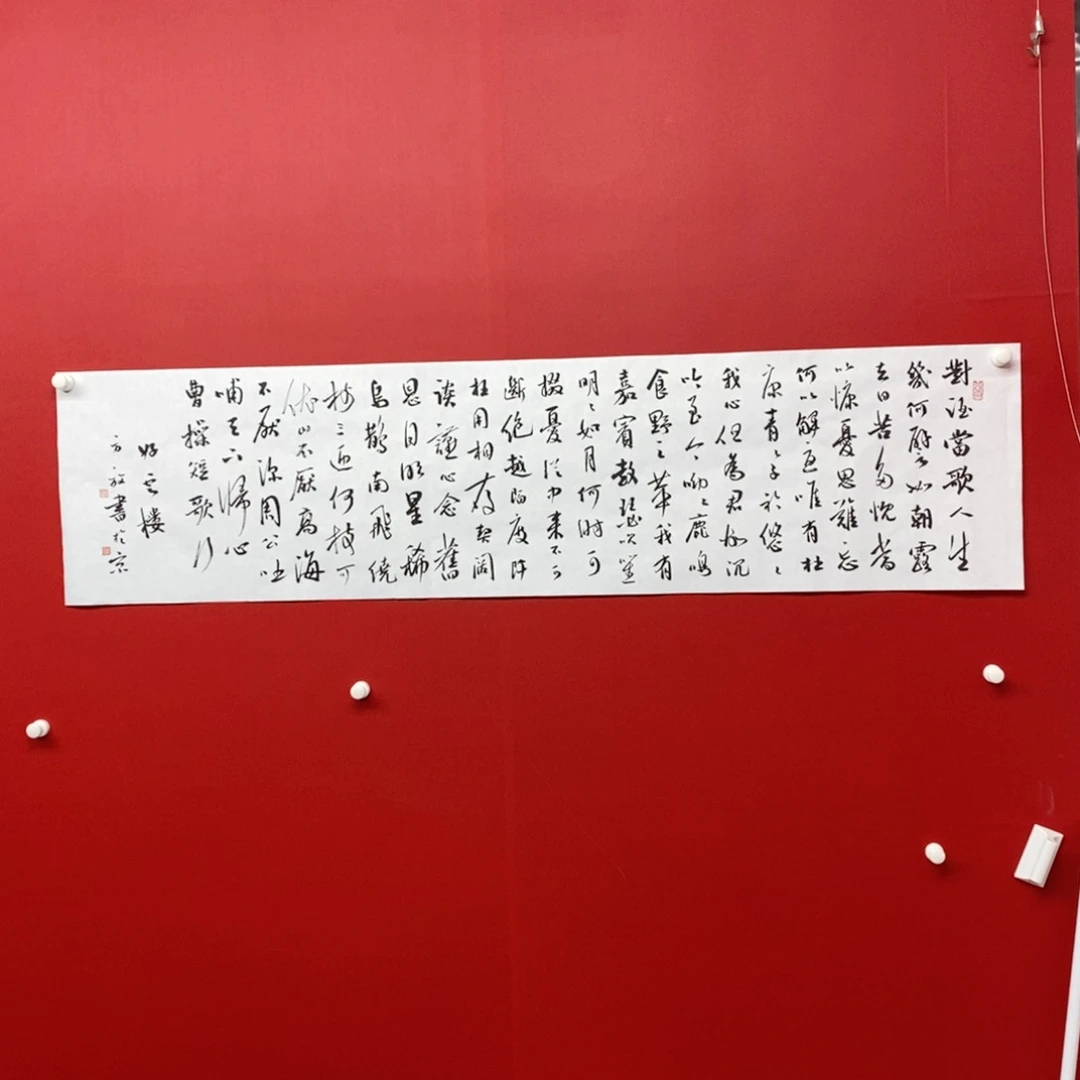 對酒當歌人生
幾何譬如朝露
去日苦多慨當
以慷憂思難忘
何以解憂唯有杜
康青々子衿悠々
我心但為君故沉
吟至今呦々鹿鳴
食野之苹我有
嘉賓鼓瑟吹笙
明々如月何時可
掇憂從中來不可
斷絕越陌度阡
枉用相存契闊
談讌心念舊
恩月明星稀
烏鵲南飛繞
樹三匝何枝可
依山不厭高海
不厭深周公吐
哺天下歸心
曹操短歌行
好云楼
方放書於京